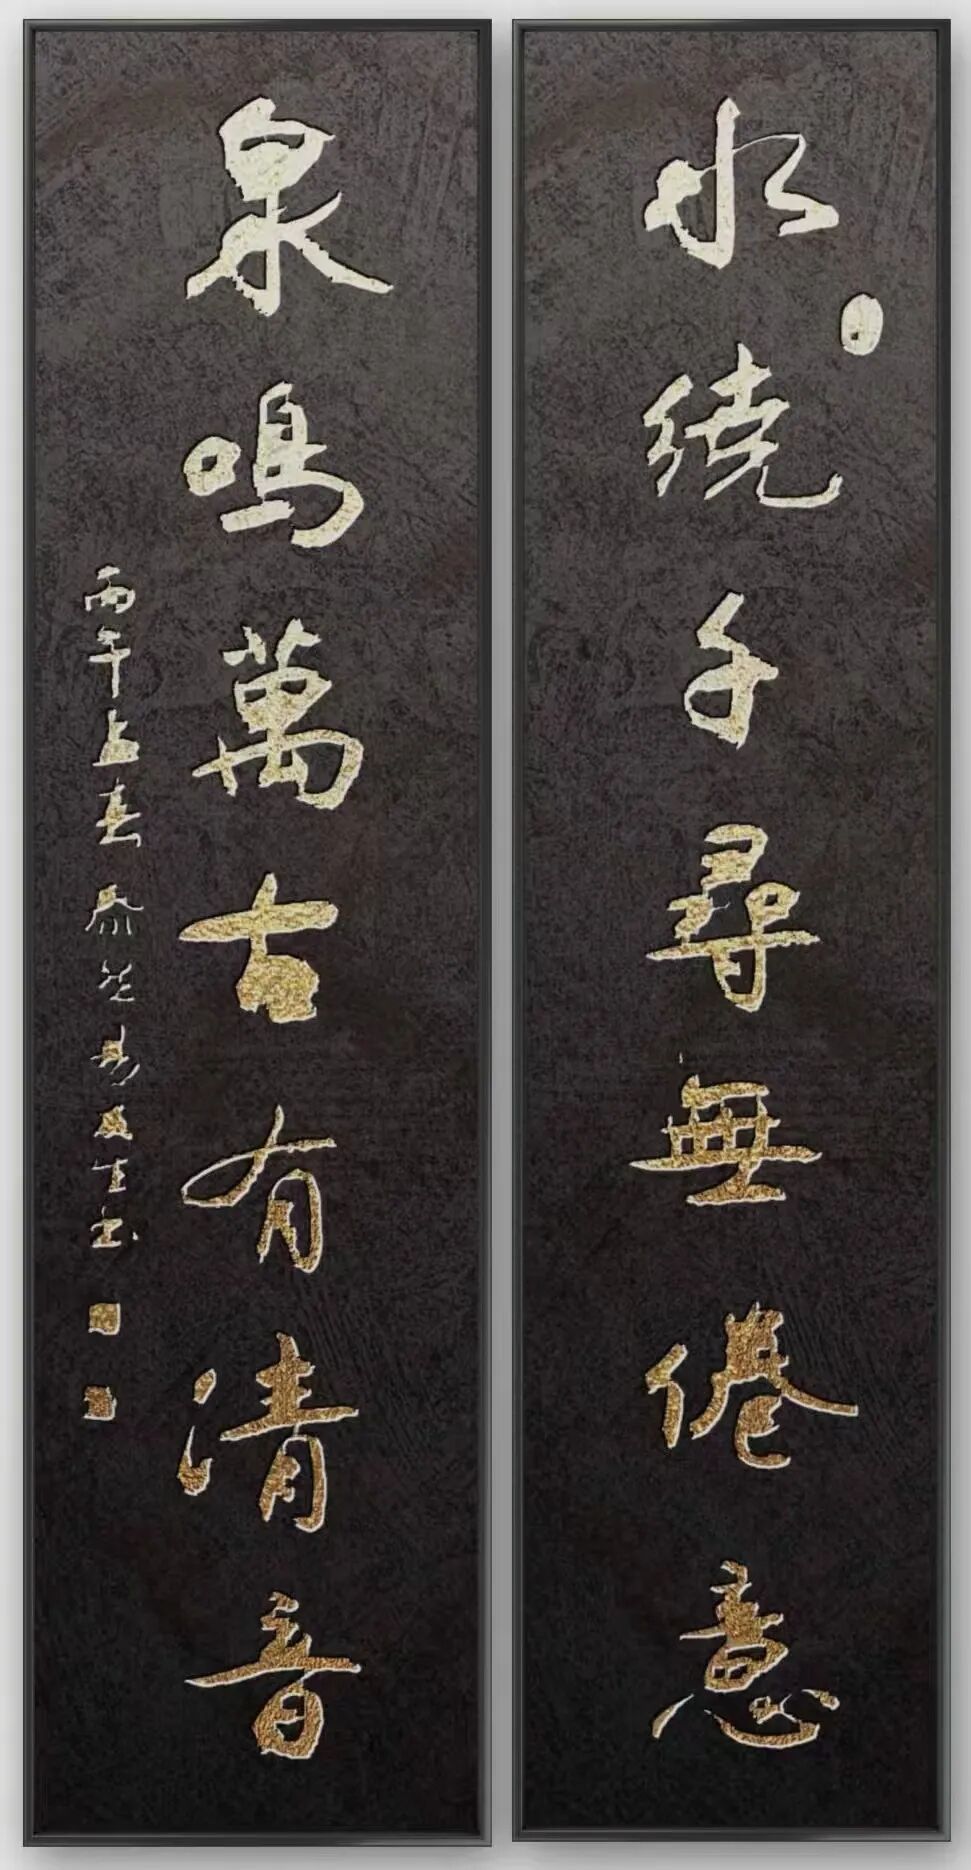 水繞千尋無倦意
泉鳴萬古有清音
丙午孟春
生书